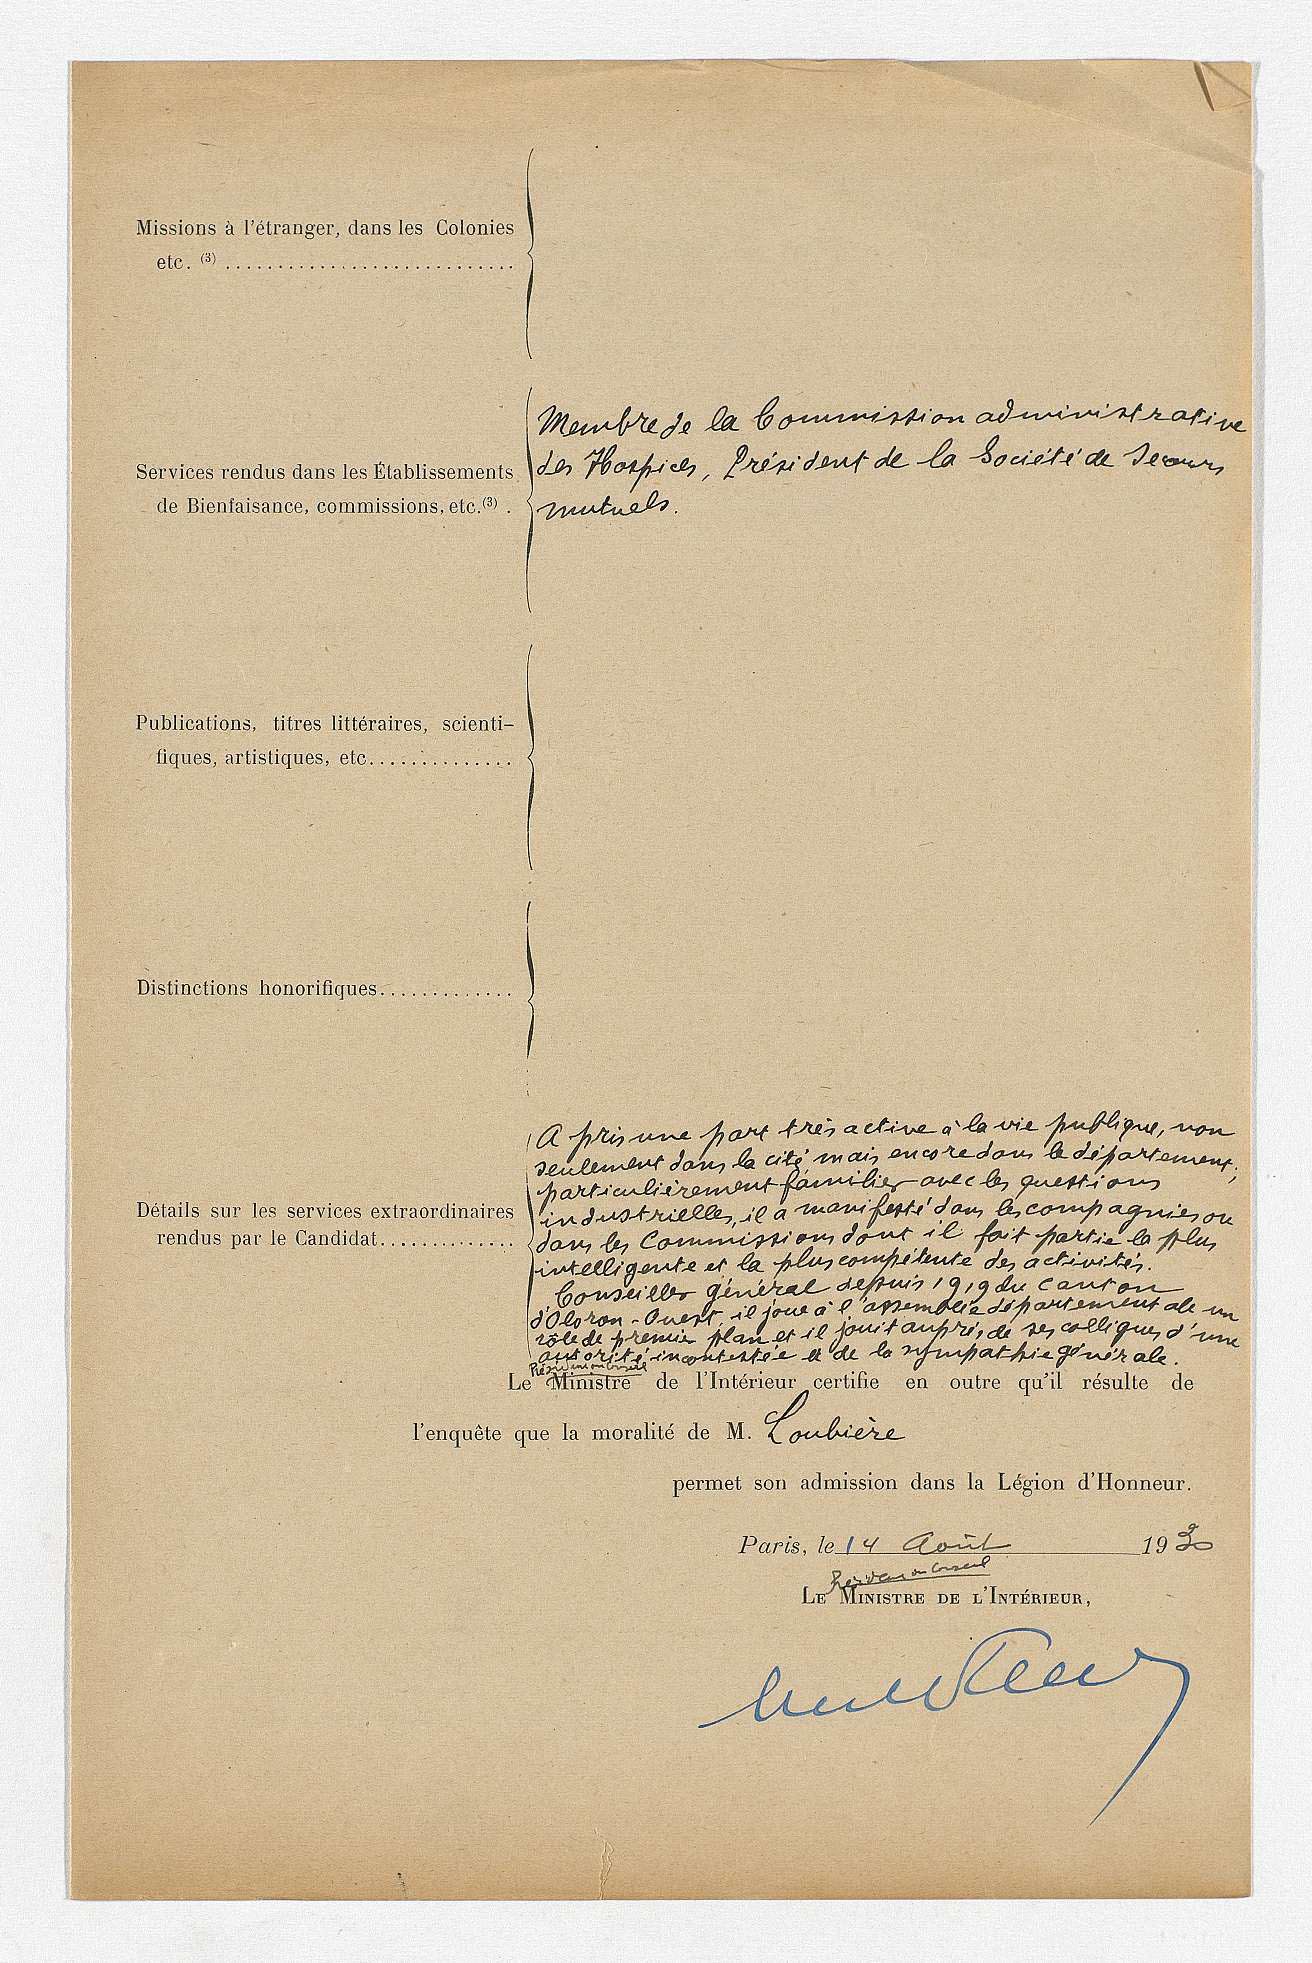 Missions à l'étranger, dans les Colonies
etc. (3) ............................
Membre de la Commission administrative
des Hospices, Président de la Société de Secours
mutuels.
Services rendus dans les Établissements
de Bienfaisance, commissions, etc.(3) .
Publications, titres littéraires, scienti-
fiques, artistiques, etc..............
Distinctions honorifiques.............
A pris une part très active à la vie publique, non
seulement dans la cité, mais encore dans le département;
particulièrement familier avec les questions
industrielles, il a manifesté dans les compagnies ou
dans les Commissions dont il fait partie la plus
intelligente et la plus compétente des activités.
Conseiller général depuis 1919 du canton
d'Oloron-Ouest, il joue à l'assemblée départementale un
rôle de premier plan et il jouit auprès de ses collègues d'une
autorité incontestée et de la sympathie générale.
Détails sur les services extraordinaires
rendus par le Candidat..............
Président du Conseil
Le Ministre de l'Intérieur certifie en outre qu'il résulte de
l'enquête que la moralité de M. Loubière
permet son admission dans la Légion d'Honneur.
Paris, le 14 Août 1930
Président du Conseil
LE MINISTRE DE L'INTÉRIEUR,